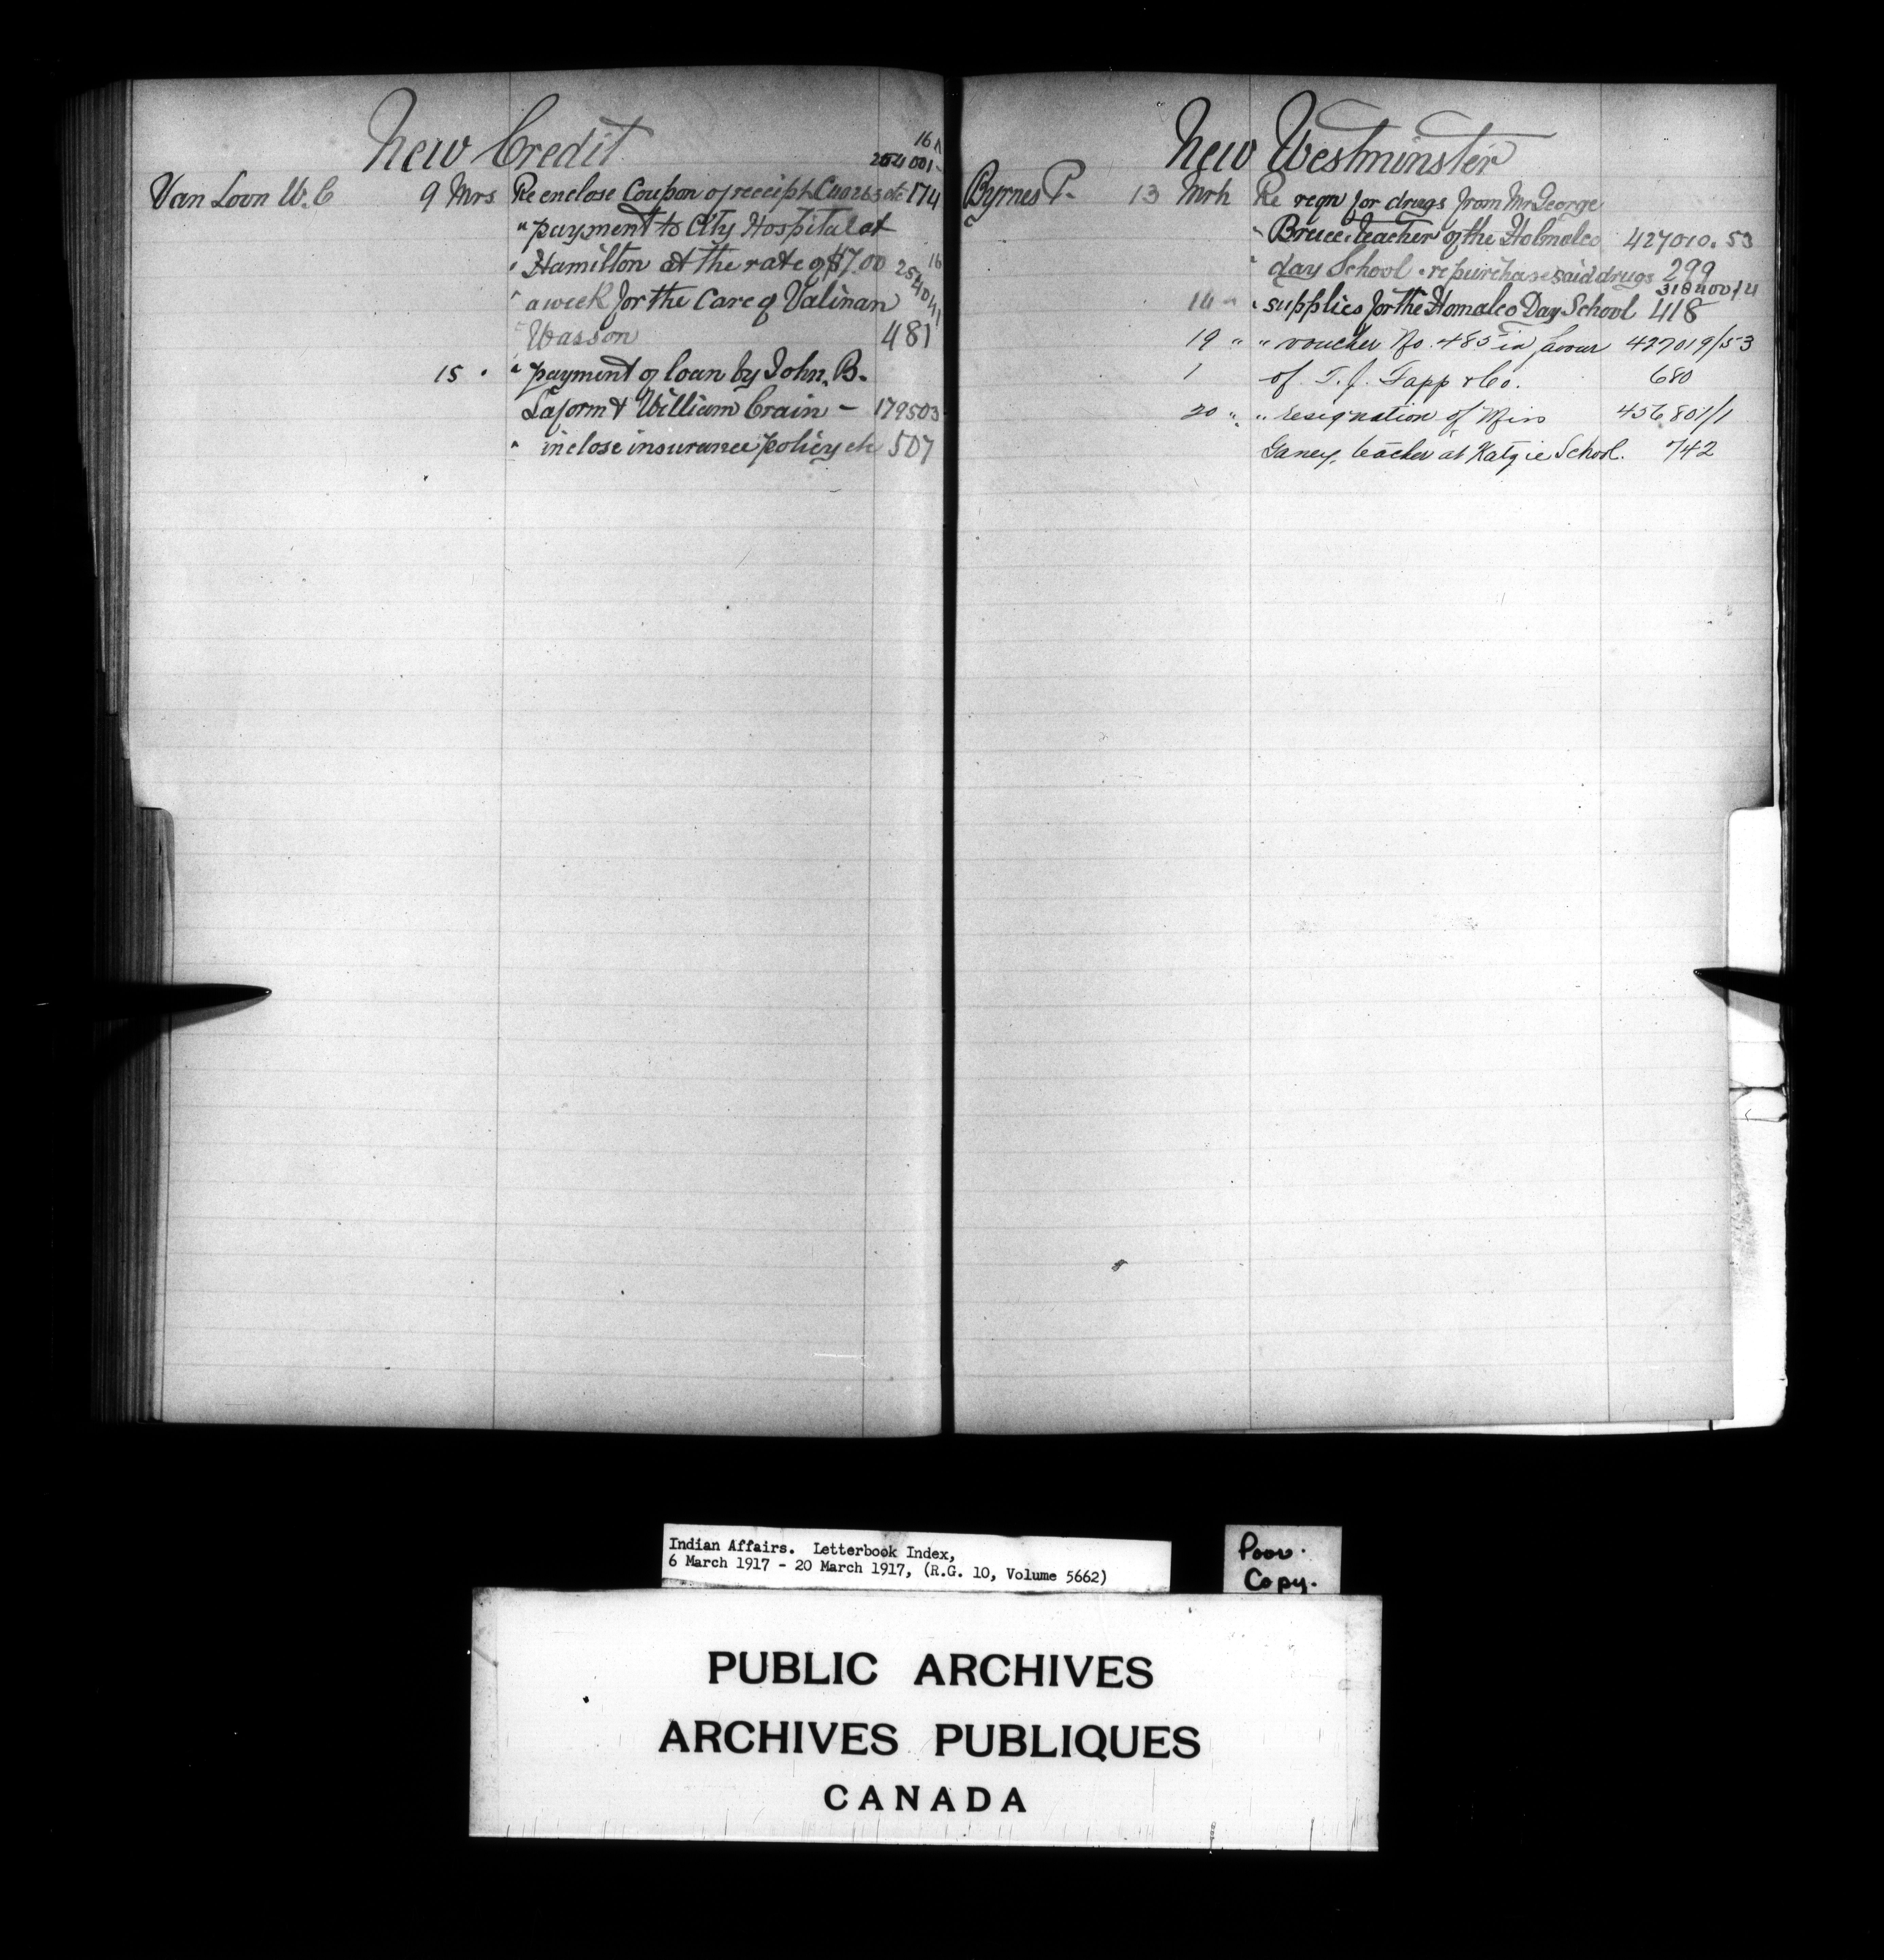 New Credit
16
254001-
Van Loon W. C 9 Mrs Re enclose Coupon of receipt etc 174
" payment to City Hospital at
" Hamilton at the rate of $7.00 16
" a week for the Care of Valinan
" Wasson 481
15 " " payment of loan by John. B.
Laform & William Crain - 179503
" inclose insurance policy etc 507
New Westminster
Byrnes P. 13 Mrh Re reqn for drugs from Mr George
" Bruce teacher of the Holmalco 427010.53
" day School " re purchase said drugs 299
318400/4
14 " " supplies for the Homalco Day School 418
19 " " voucher No. 485 in favour 427019/53
1 of T. J. Trapp & Co. 680
20 " " resignation of Miss 456801/1
Ganey, teacher at Katzie School. 742
Indian Affairs. Letterbook Index,
6 March 1917 - 20 March 1917, (R.G. 10, Volume 5662)
Poor.
Copy.
PUBLIC ARCHIVES
ARCHIVES PUBLIQUES
CANADA